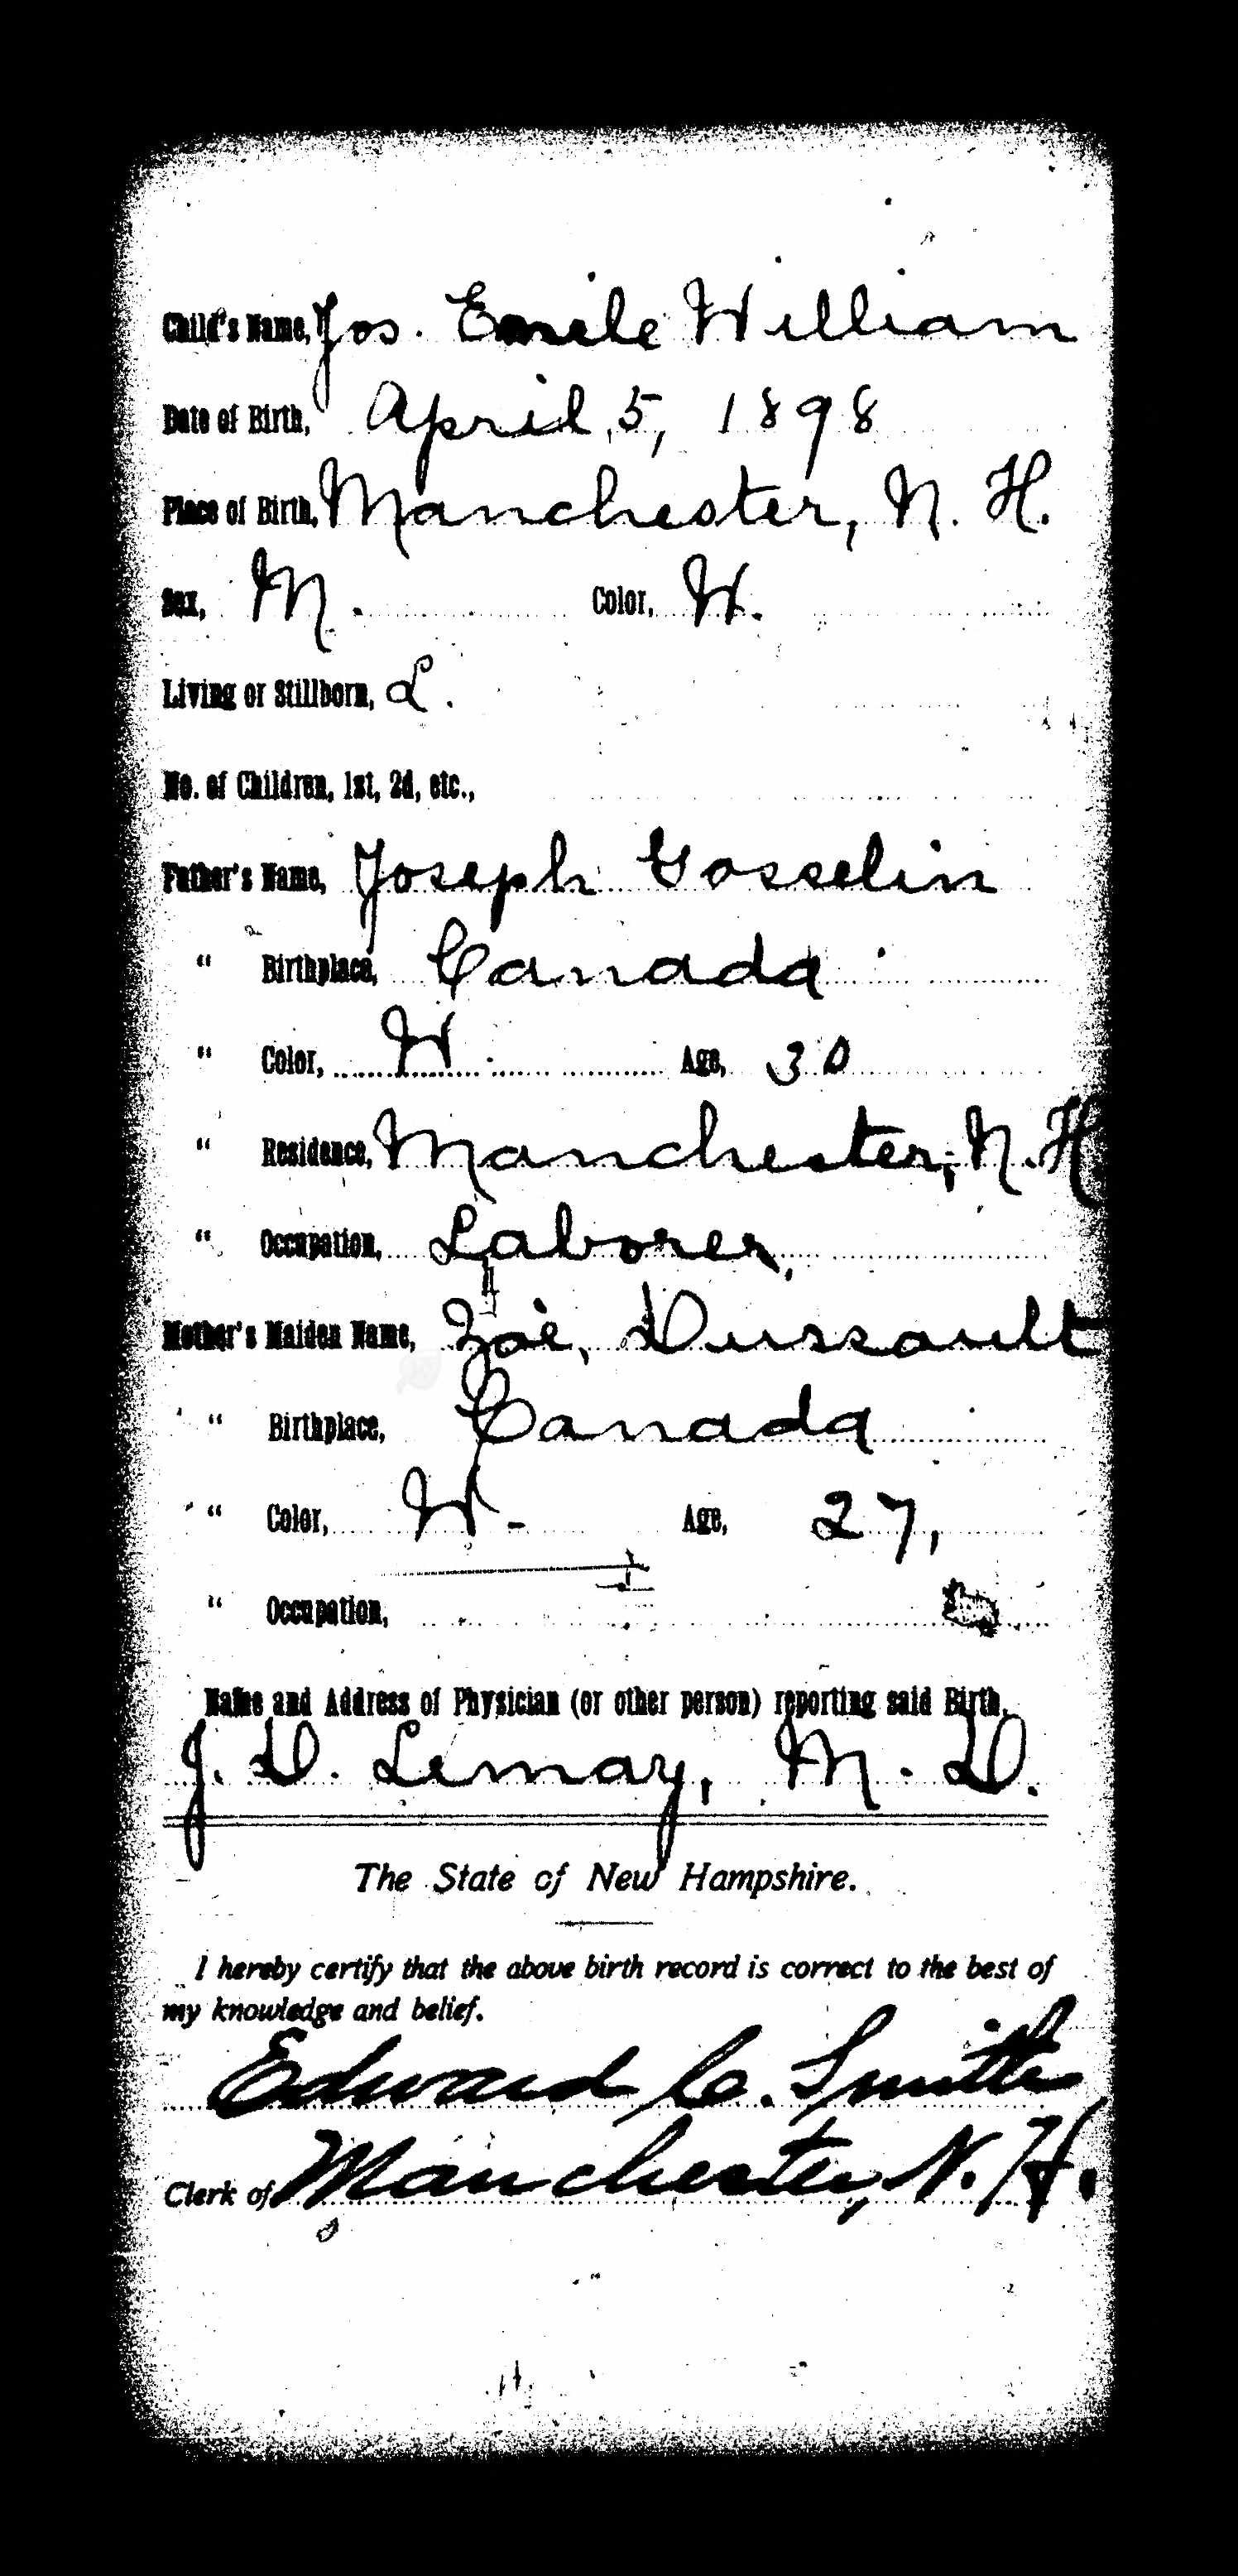 Child's Name, Jos. Emile William
Date of Birth, April, 5, 1898
Place of Birth, Manchester, N. H.
Sex, M. Color, W.
Living or Stillborn, L.
No. of Children, 1st, 2d, etc.,
Father's Name, Joseph Gosselin
" Birthplace, Canada
" Color, W. Age, 30
" Residence, Manchester, N. H
" Occupation, Laborer,
Mother's Maiden Name, Zoé, Dussault
" Birthplace, Canada
" Color, W- Age, 27,
" Occupation,
Name and Address of Physician (or other person) reporting said Birth,
J. D. Lemay, M. D.
The State of New Hampshire.
I hereby certify that the above birth record is correct to the best of
my knowledge and belief.
Edward C. Smith
Clerk of Manchester, N. H.